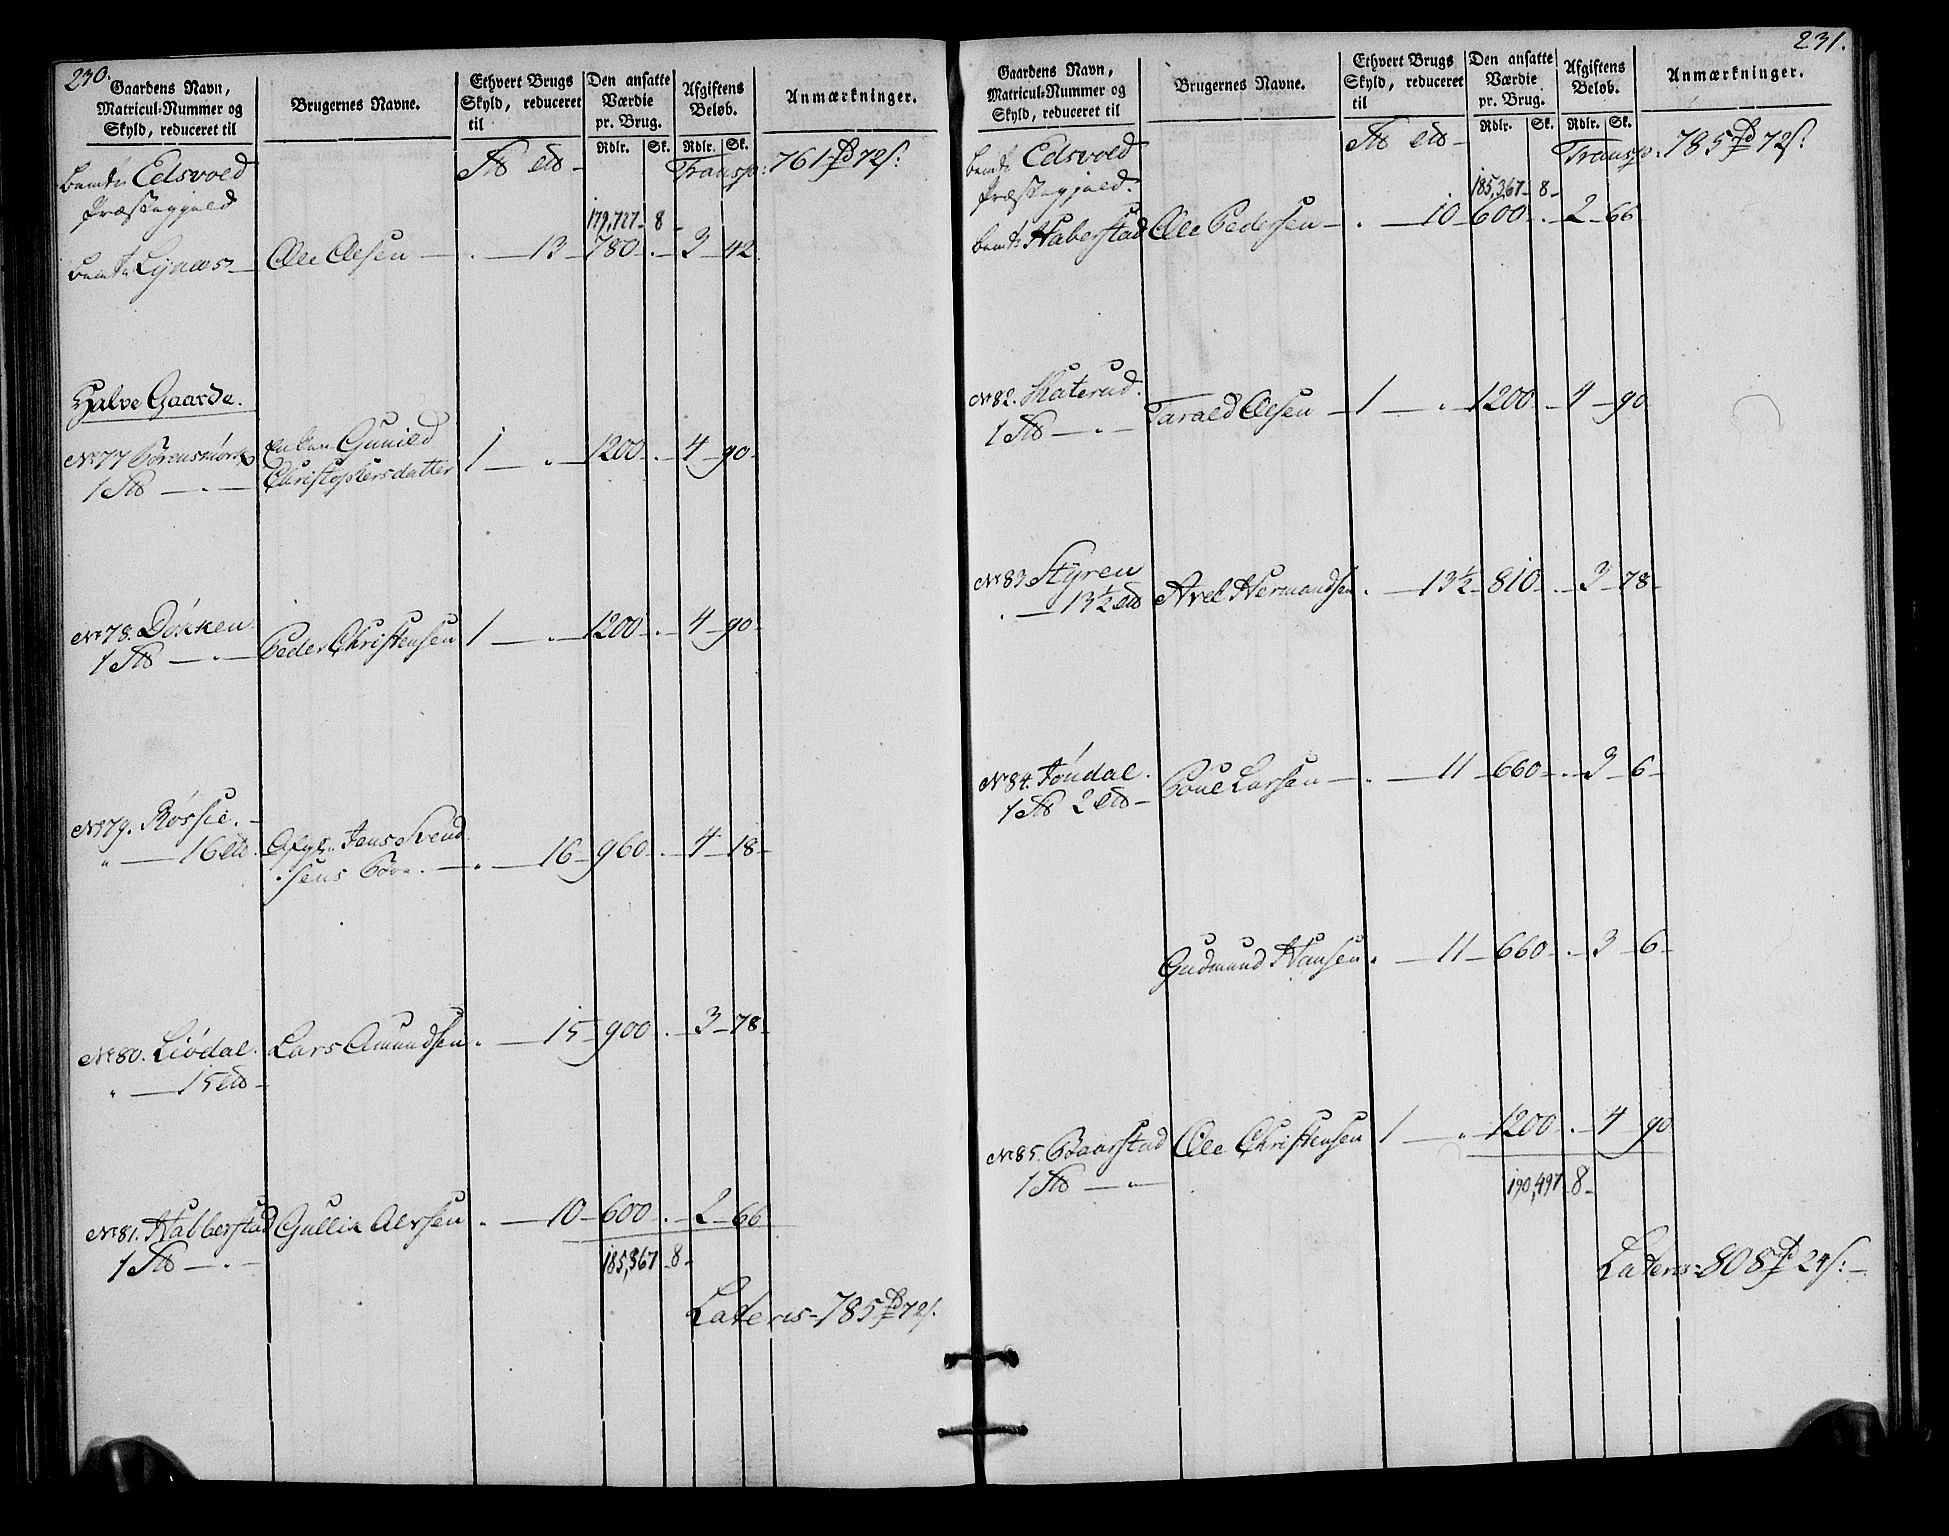 230.
Gaardens Navn,
Matricul-Nummer og
Skyld, reduceret til
Brugernes Navne.
Ethvert Brugs
Skyld, reduceret
til
Den ansatte
Værdie
pr. Brug.
Rdlr. Sk.
Afgiftens
Beløb.
Rdlr. Sk.
Anmærkninger.
Edsvold
Præstegjeld
Transp: 761 72 s:
179,727 8
Lynæs Ole Olsen . 13 780 . 3 42
Halve Gaarde.
No 77 Enken Gunild
1 Christophersdatter 1 " 1200 . 4 90
No 78. Døkken
1 Peder Christensen 1 " 1200 . 4 90
No 79. Røssie.
" 16 Jens Svend
sens " 16 960 . 4 18
No 80. Liødal. Lars Amundsen " 15 900 . 3 78
" 15
No 81. Habberstad Gullik Alvsen " 10 600 . 2 66
1
185,367 8
Lateris 785 72 s.
231.
Gaardens Navn,
Matricul-Nummer og
Skyld, reduceret til
Brugernes Navne.
Ethvert Brugs
Skyld, reduceret
til
Den ansatte
Værdie
pr. Brug.
Rdlr. Sk.
Afgiftens
Beløb.
Rdlr. Sk.
Anmærkninger.
Edsvold
Præstegjeld.
Transp. 785 72 s:
185,367 8
Haberstad Ole Pedersen . 10 600 . 2 66
No 82. Skaterud.
1 Tarald Olsen 1 " 1200 4 90
No 83 Styren
. 13½ Axel Hermandsen . 13½ 810 . 3 78
No 84. Jøndal.
1 2 Poul Larsen . 11 660 . 3 6
Gudmund Hansen . 11 660 . 3 6
No 85. Baarstad Ole Christensen 1 " 1200 . 4 90
1
190,497 8
Lateris 808 24 s: